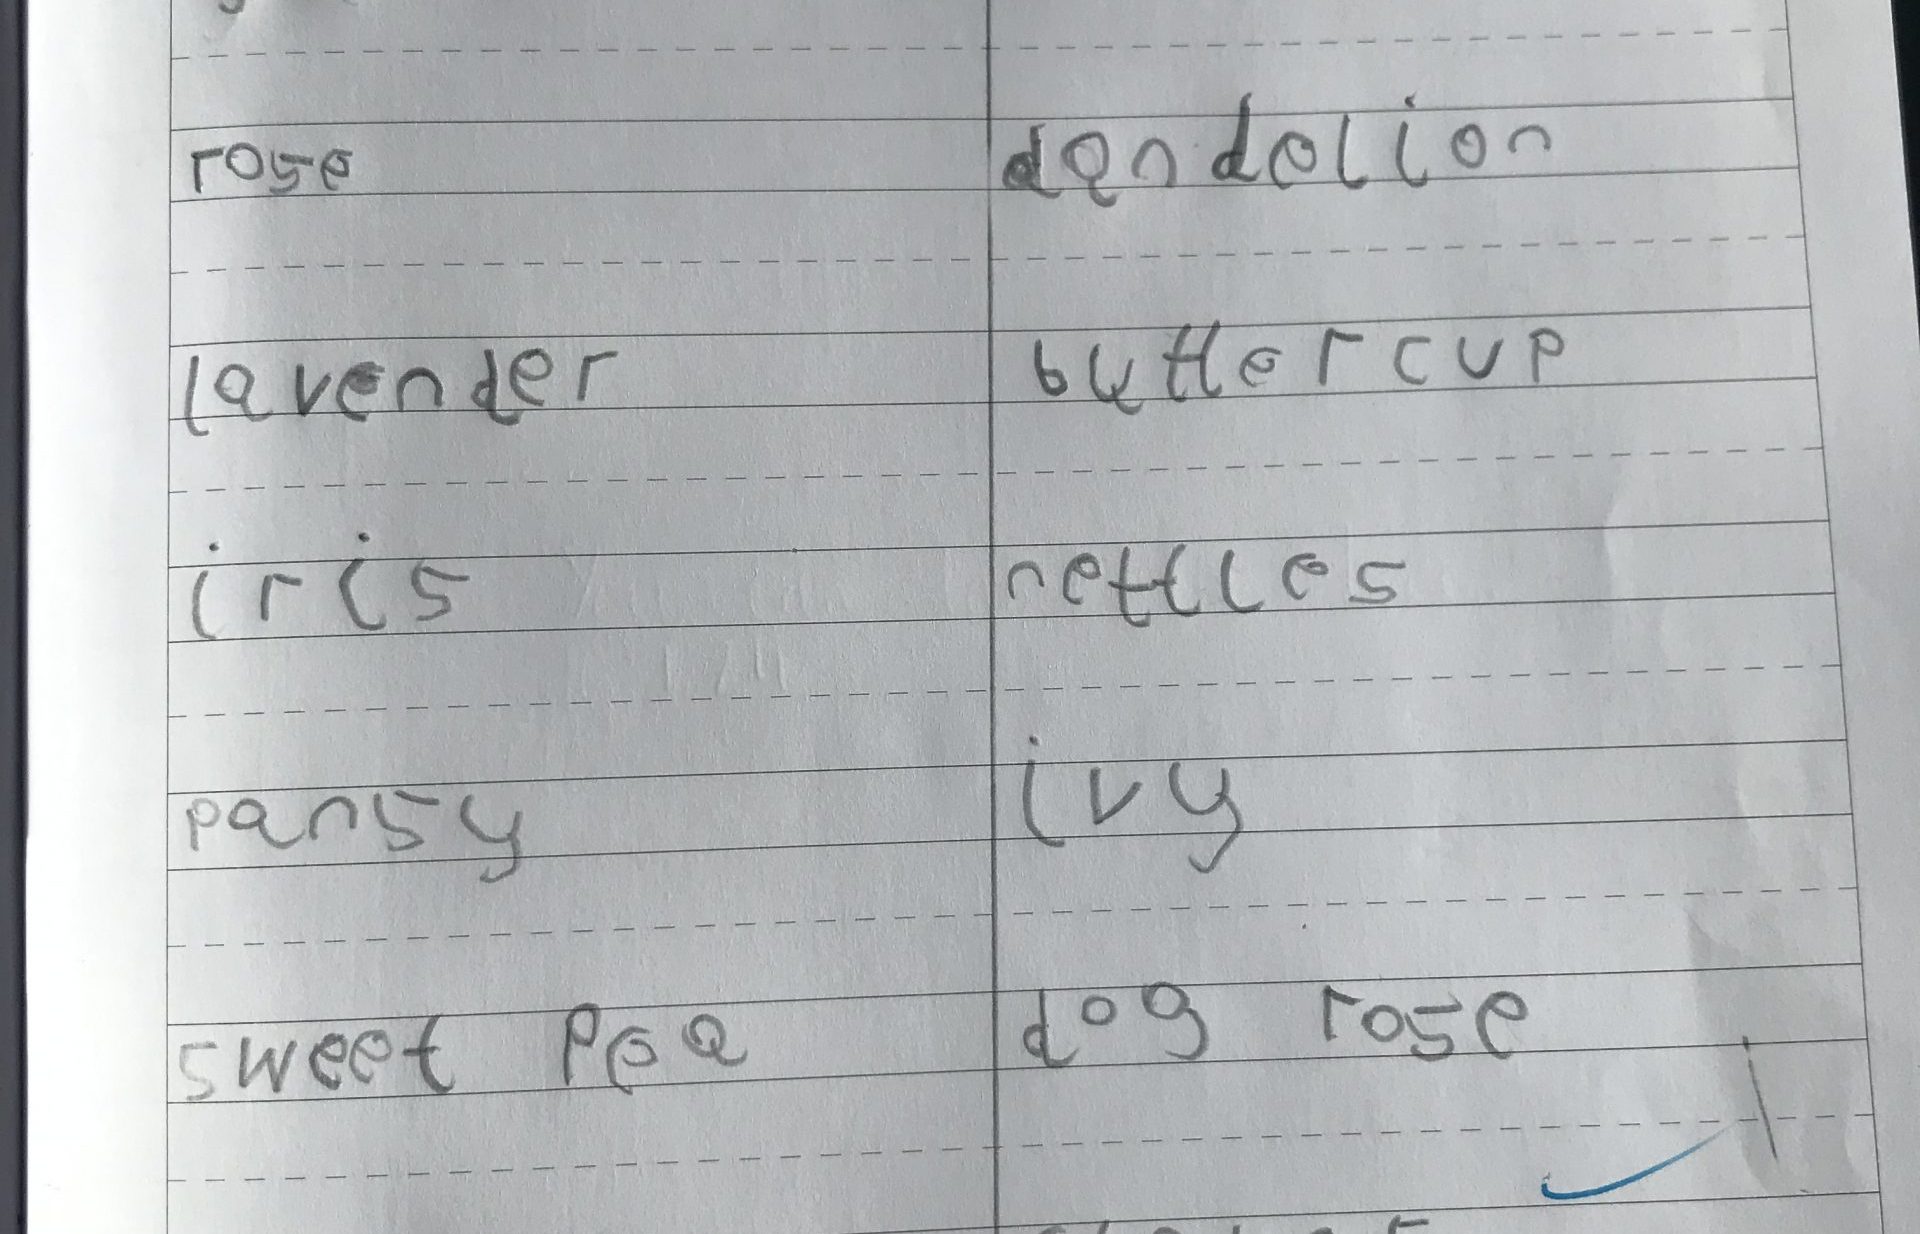 rose dandelion
lavender buttercup
iris nettles
pansy ivy
sweet pea dog rose